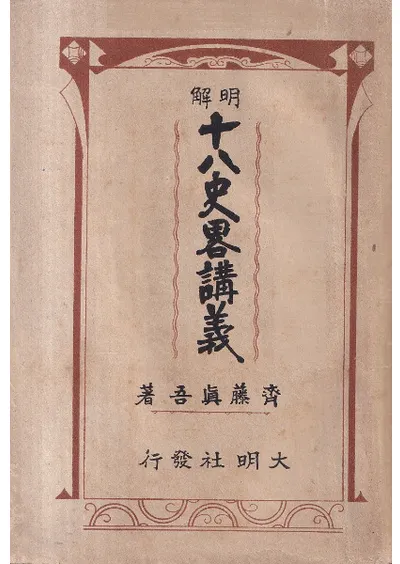 明解
十八史畧講義
齊藤眞吾著
大明社發行